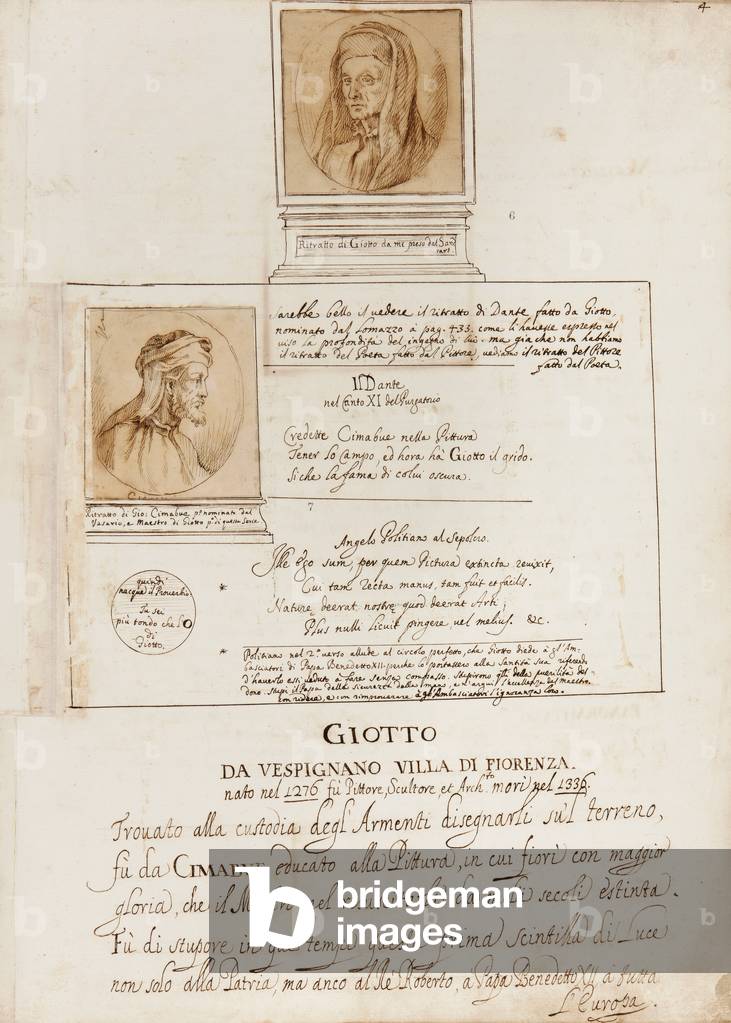 4
6
Ritratto di Giotto da me preso dal San:
Sarebbe bello il vedere il ritratto di Dante fatto da Giotto,
nominato dal Lomazzo à pag. 433. come li havesse espresso nel
viso la profondità del ingegno di lui. ma gia che non habbiamo
il ritratto del Poeta fatto dal Pittore, vediamo il ritratto del Pittore
fatto dal Poeta.
Il Dante
nel Canto XI del Purgatorio
Credette Cimabue nella Pittura
Tener lo Campo, ed hora hà Giotto il grido.
Siche la fama di colui oscura.
Ritratto di Gio: Cimabue pº nominato dal
Vasario, e Maestro di Giotto pº di questa Serie
7
Angelo Politiano al Sepolcro.
* Ille ego sum, per quem Pictura extincta revixit,
Cui tam recta manus, tam fuit et facilis.
Naturę deerat nostrę quod deerat Arti;
Plus nulli licuit pingere, vel melius. &c.
quindi
nacque il Proverbio
Tu sei
più tondo che l'O
di
Giotto.
* Politiano nel 2º verso allude al circolo perfetto, che Giotto diede à gl'Am-
basciatori di Papa Benedetto XII. perche lo portassero alla Santità sua
d'haverlo essi veduto à fare senza compasso. Stupirono
dono. Stupì il Papa della sicurezza della mano, e
con ridere, e con rimproverare à gl'Ambasciatori l'ignoranza loro.
GIOTTO
DA VESPIGNANO VILLA DI FIORENZA.
nato nel 1276 fù Pittore, Scultore, et Archto. morì nel 1336.
Trovato alla custodia degl'Armenti disegnarli sù'l terreno,
fù da CIMABUE educato alla Pittura, in cui fiorì con maggior
gloria, che il secoli estinta.
Fù di stupore in que' tempi prima scintilla di Luce
non solo alla Patria, ma anco al Rè Roberto, a Papa Benedetto XII, à tutta
L'Europa.
b
bridgeman
images